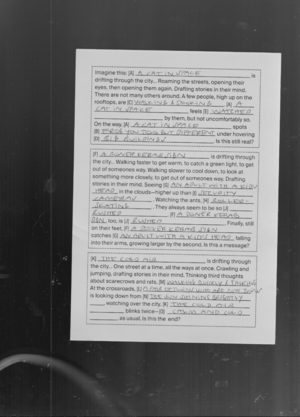 Imagine this: [A] A CAT IN SPACE is
drifting through the city... Roaming the streets, opening their
eyes, then opening them again. Drafting stories in their mind.
There are not many others around. A few people, high up on the
rooftops, are [C] WALKING & SMOKING. [A] A
CAT IN SPACE feels [E] WATCHED
by them, but not uncomfortably so.
On the way, [A] A CAT IN SPACE spots
[B] TWO BUT DIFFERENT under hovering
[D] BIG BUILDINGS. Is this still real?
[F] A DONER KEBAB MAN is drifting through
the city... Walking faster to get warm, to catch a green light, to get
out of someones way. Walking slower to cool down, to look at
something more closely, to get out of someones way. Drafting
stories in their mind. Seeing [G] AN ADULT WITH A KIDS
HEAD in the clouds—higher up than [I] SECURITY
CAMERAMAN. Watching the ants, [H] ROLLER-
SKATING. They always seem to be so [J]
RUSHED. [F] A DONER KEBAB
MAN, too, is [J] RUSHED. Finally, still
on their feet, [F] A DONER KEBAB MAN
catches [G] AN ADULT WITH A KIDS HEAD, falling
into their arms, growing larger by the second. Is this a message?
[K] THE COLD AIR is drifting through
the city... One street at a time, all the ways at once. Crawling and
jumping, drafting stories in their mind. Thinking third thoughts
about scarecrows and rats. [M] WALKING SLOWLY & TALKING
at the crossroads, [L]
is looking down from [N] THE SUN SHINING BRIGHTLY
watching over the city. [K] THE COLD AIR
blinks twice—[O] COLD
as usual. Is this the end?